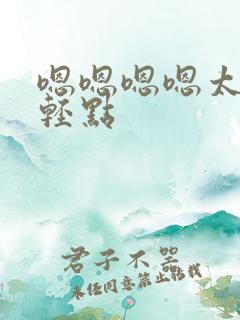 嗯嗯嗯嗯太
輕點
君子不器
未任同意禁止轉載